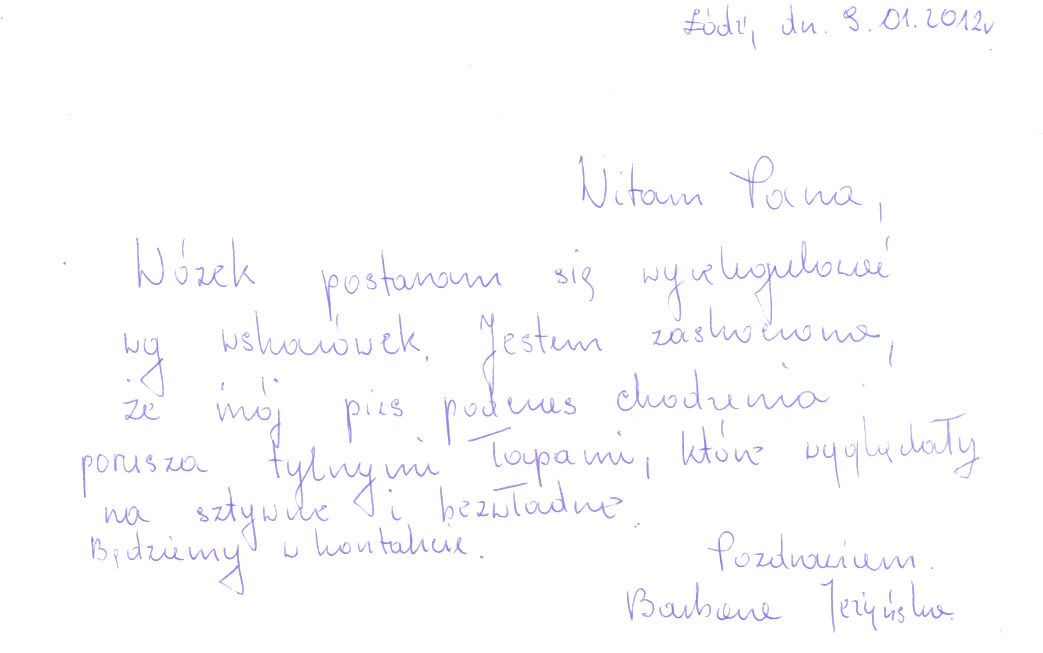 Łódź, dn. 9.01.2012r
Witam Pana,
Wózek postaram się wyregulować
wg wskazówek. Jestem zaskoczona,
że mój pies podczas chodzenia
porusza tylnymi łapami, które wyglądały
na sztywne i bezwładne.
Będziemy w kontakcie.
Pozdrawiam.
Barbara